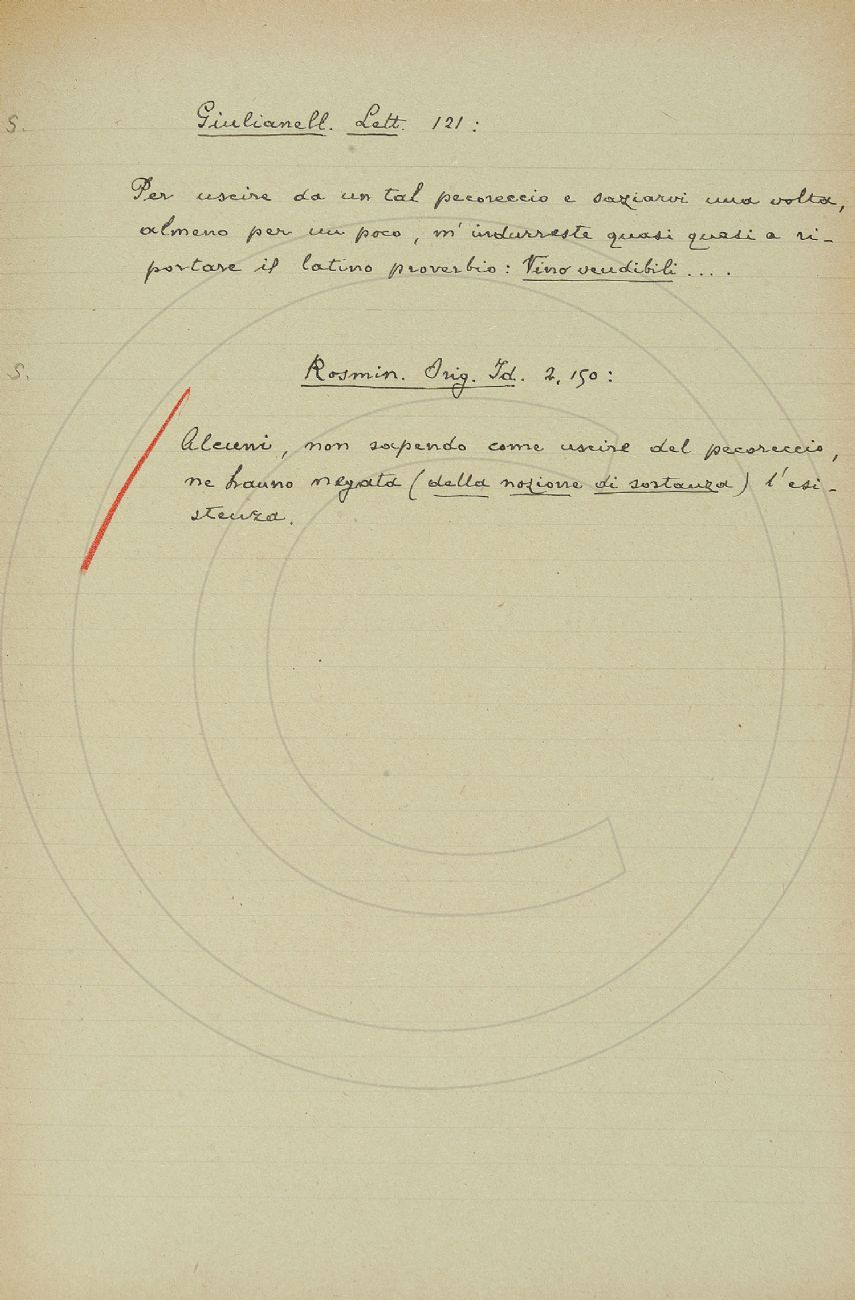 S. Giulianell. Lett. 121 :
Per uscire da un tal pecoreccio e saziarvi una volta,
almeno per un poco, m'indurreste quasi quasi a ri-
portare il latino proverbio: Vino vendibili ....
S. Rosmin. Orig. Id. 2, 150 :
Alcuni, non sapendo come uscire del pecoreccio,
ne hanno negata (della nozione di sostanza) l'esi-
stenza.